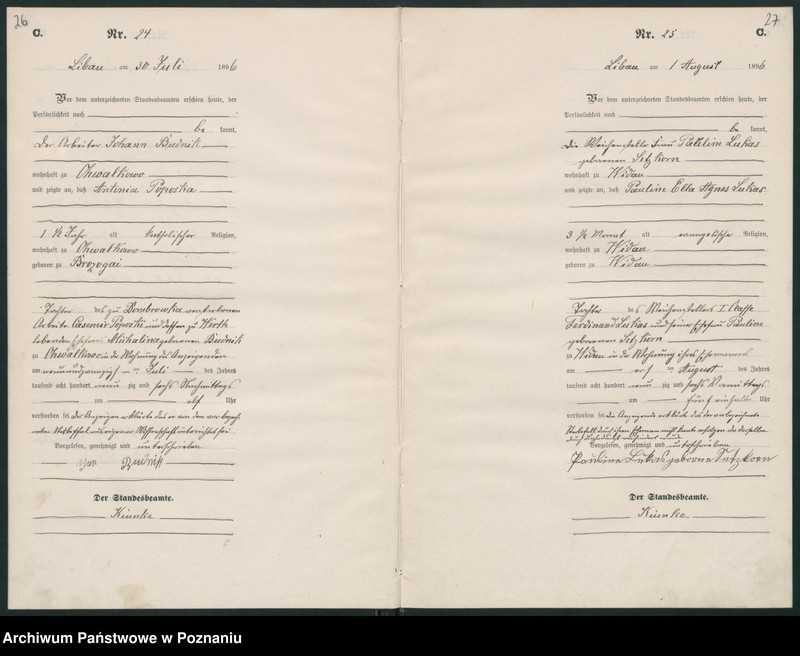 26
C.
Nr. 24
Libau am 30 Juli 1896
Vor dem unterzeichneten Standesbeamten erschien heute, der
Persönlichkeit nach
be kannt,
Der Arbeiter Johann Budnik
wohnhaft zu Chwalkowo
und zeigte an, daß Antonia Poposka
1 ½ Jahr alt katholischer Religion,
wohnhaft zu Chwalkowo
geboren zu Brozogai
Tochter des zu Dombrowska verstorbenen
Arbeiter Casimir Poposki und dessen zu
lebenden Ehefrau Michalina geborenen Budnik
zu Chwalkowo in der Wohnung des Anzeigenden
am neunundzwanzig sten Juli des Jahres
tausend acht hundert neun zig und sechs Nachmittags
um elf Uhr
verstorben sei der Anzeigende erklärte das er von dem
Sterbefall aus eigener Wissenschaft unterrichtet sei
Vorgelesen, genehmigt und unterschrieben
Jan Budnik
Der Standesbeamte.
Kiunke
27
C.
Nr. 25
Libau am 1 August 1896
Vor dem unterzeichneten Standesbeamten erschien heute, der
Persönlichkeit nach
be kannt,
die Weichensteller Frau Pauline Lukas
geborenen Setzkorn
wohnhaft zu Widau
und zeigte an, daß Pauline Ella Agnes Lukas
3 ½ Monat alt evangelische Religion,
wohnhaft zu Widau
geboren zu Widau
Tochter des Weichenstellers I. Classe
Ferdinand Lukas und seiner Ehefrau Pauline
geborenen Setzkorn
zu Widau in der Wohnung ihres Ehemannes
am ersten August des Jahres
tausend acht hundert neun zig und sechs Vormittags
um fünf einhalb Uhr
verstorben sei die Anzeigende erklärte das der
Sterbefall durch ihren Ehemann nicht heute erfolgen da derselbe
durch verhindert
Vorgelesen, genehmigt und unterschrieben
Pauline Lukas geborne Setzkorn
Der Standesbeamte.
Kiunke
Archiwum Państwowe w Poznaniu